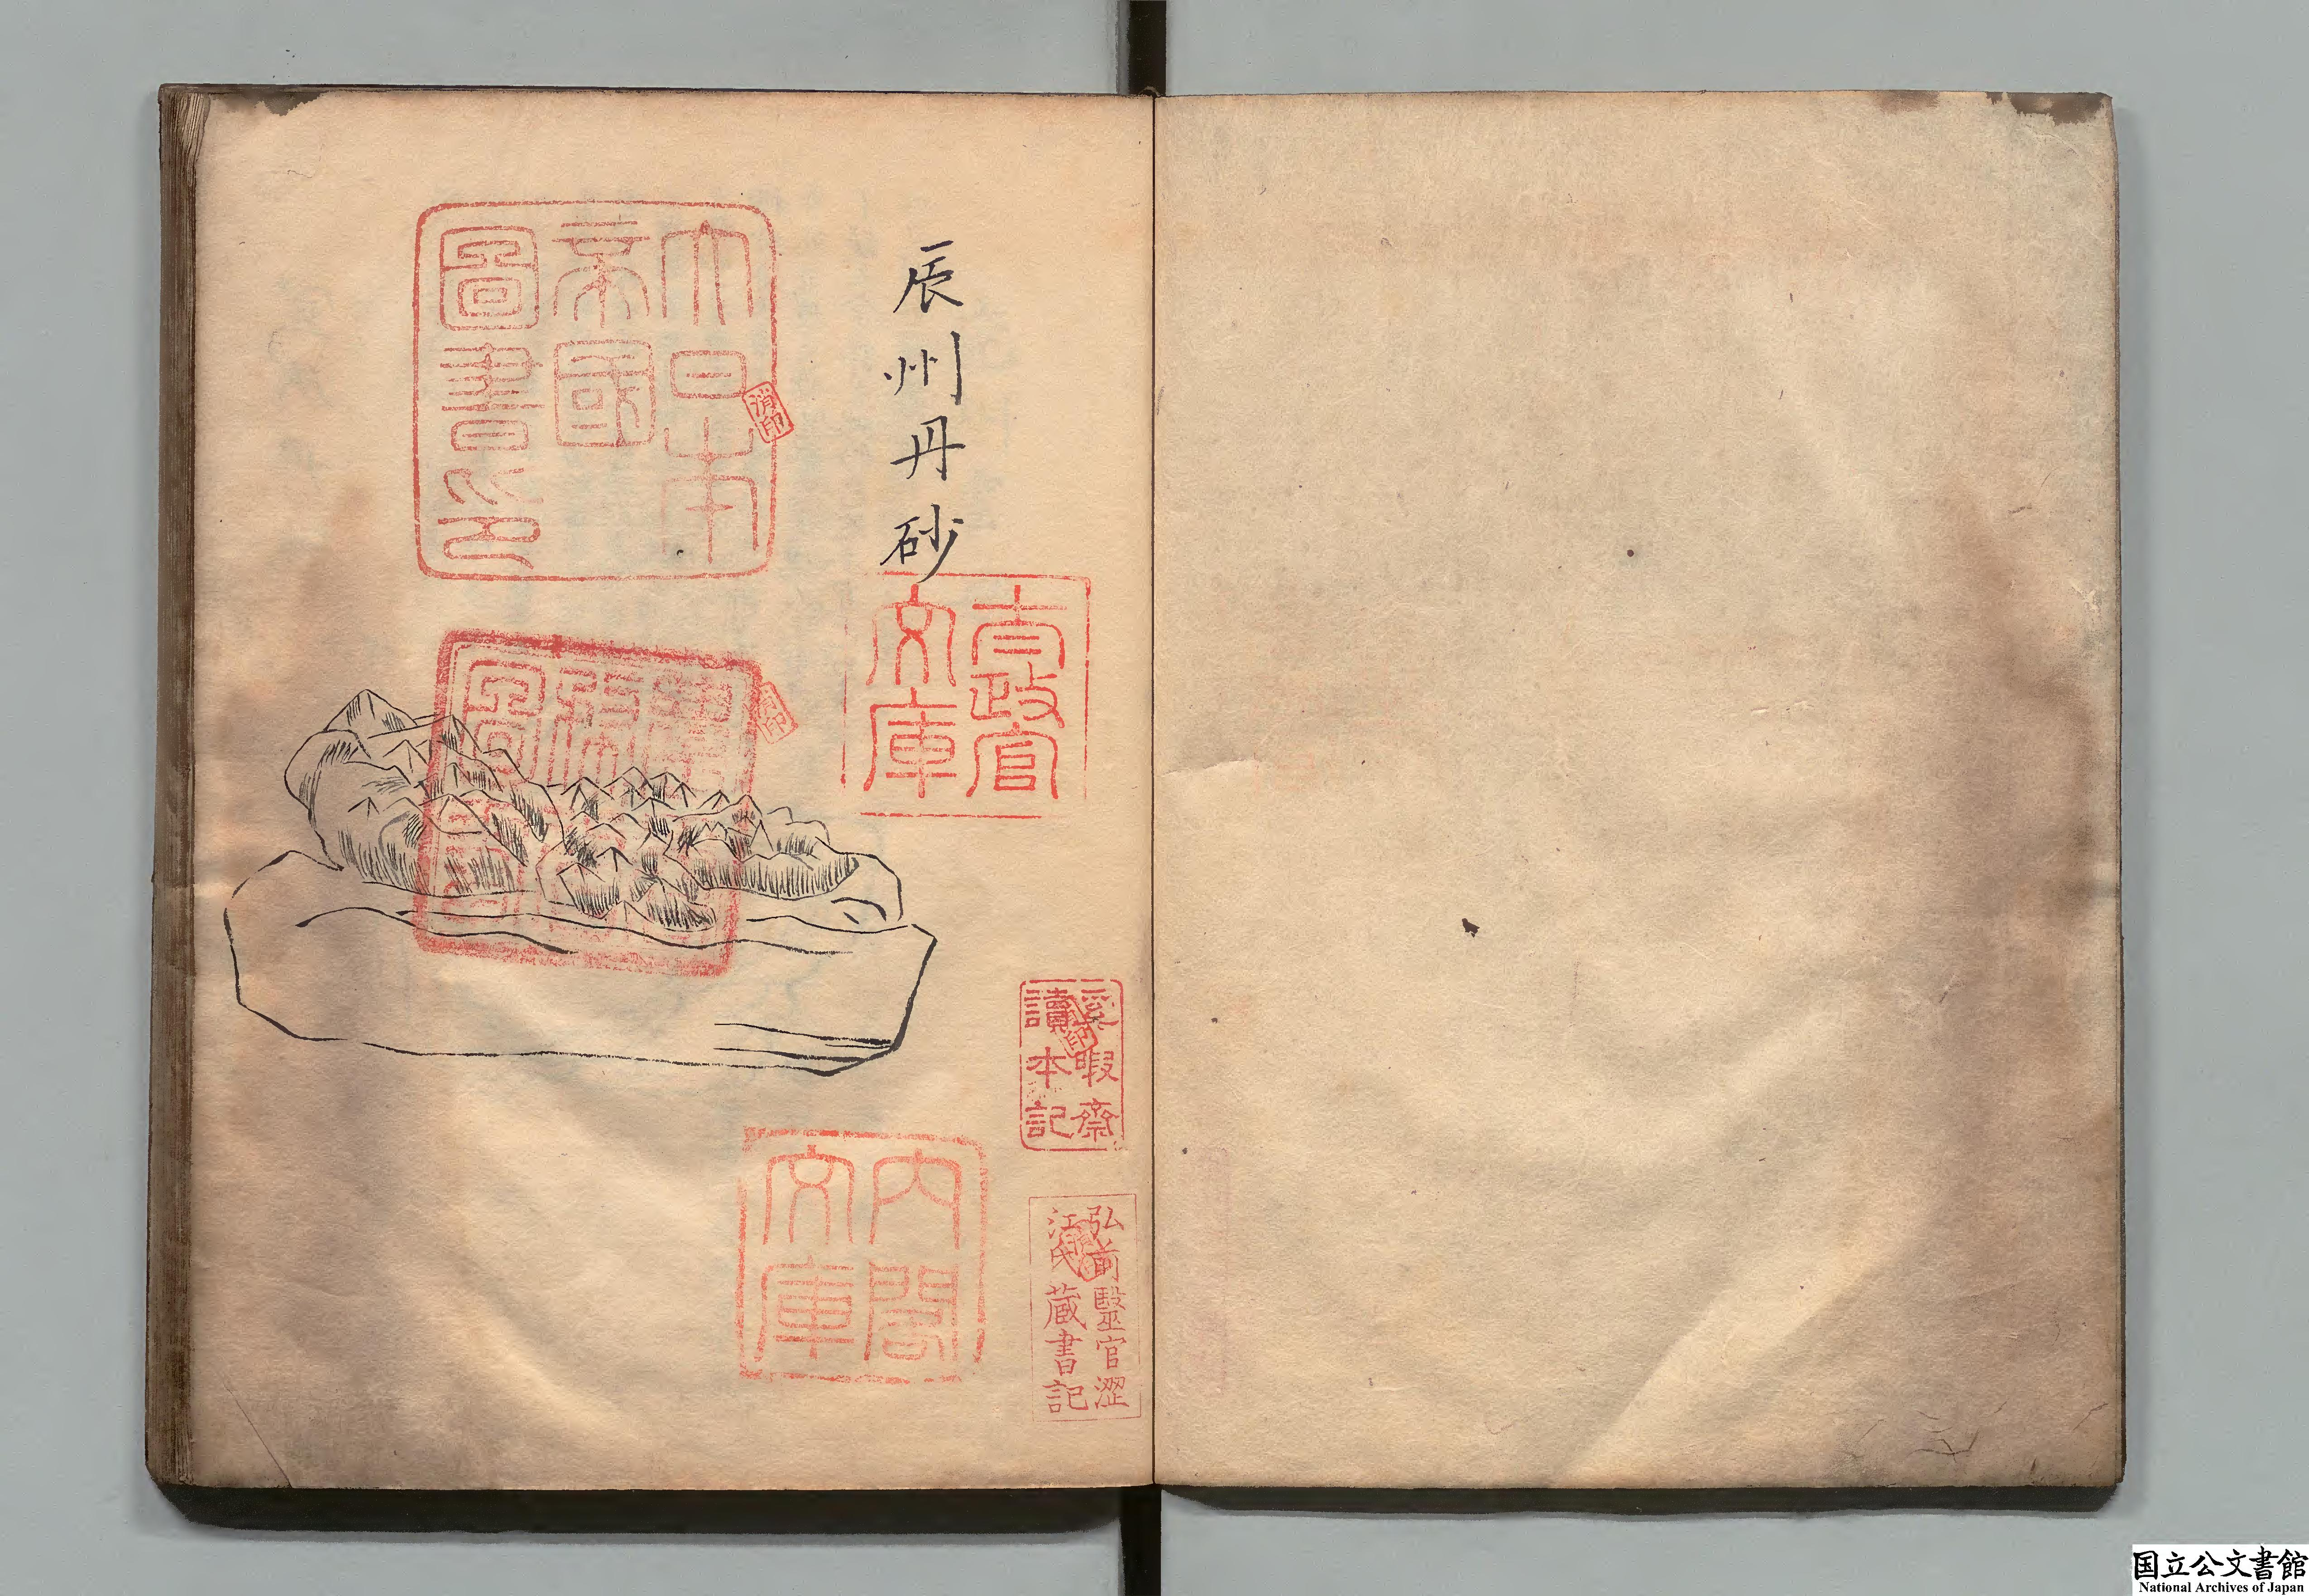 辰州丹砂
大日本
帝國
圖書印
消印
太政官
文庫
印
奚暇齋
讀本記
印
内閣
文庫
弘前醫官澀
江氏藏書記
国立公文書館
National Archives of Japan